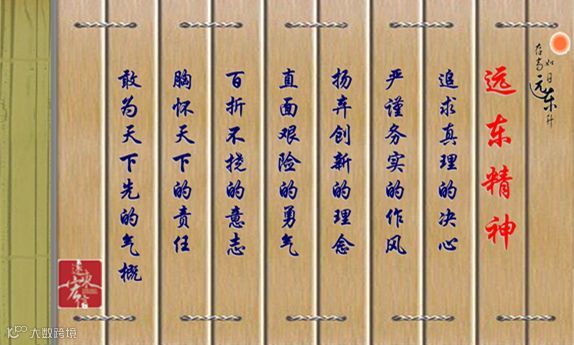 如日东升
远东精神
追求真理的决心
严谨务实的作风
扬弃创新的理念
直面艰险的勇气
百折不挠的意志
胸怀天下的责任
敢为天下先的气概
遠東宏信
大数跨境